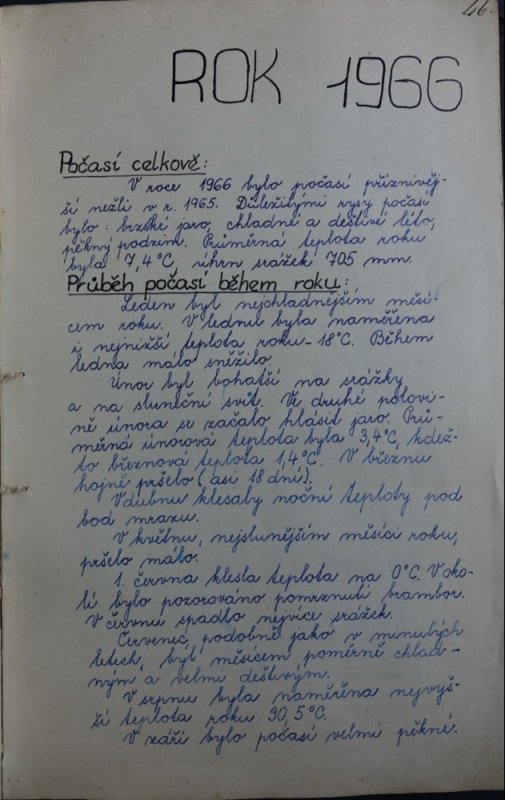 46.
ROK 1966
Počasí celkově:
V roce 1966 bylo počasí příznivěj-
ší nežli v r. 1965. Důležitými rysy počasí
bylo: brzské jaro, chladné a deštivé léto,
pěkný podzim. Průměrná teplota roku
byla 7,4°C, úhrn srážek 705 mm.
Průběh počasí během roku:
Leden byl nejchladnějším měsí-
cem roku. V lednu byla naměřena
i nejnižší teplota roku -18°C. Během
ledna málo sněžilo.
Únor byl bohatší na srážky
a na sluneční svit. Ve druhé polovi-
ně února se začalo hlásit jaro. Prů-
měrná únorová teplota byla 3,4°C, kdež-
to březnová teplota 1,4°C. V březnu
hojně pršelo (asi 18 dní).
V dubnu klesaly noční teploty pod
bod mrazu.
V květnu, nejslunějším měsíci roku,
pršelo málo.
1. června klesla teplota na 0°C. V oko-
lí bylo pozorováno pomrznutí brambor.
V červnu spadlo nejvíce srážek.
Červenec, podobně jako v minulých
letech, byl měsícem poměrně chlad-
ným a velmi deštivým.
V srpnu byla naměřena nejvyš-
ší teplota roku 30,5°C.
V září bylo počasí velmi pěkné.